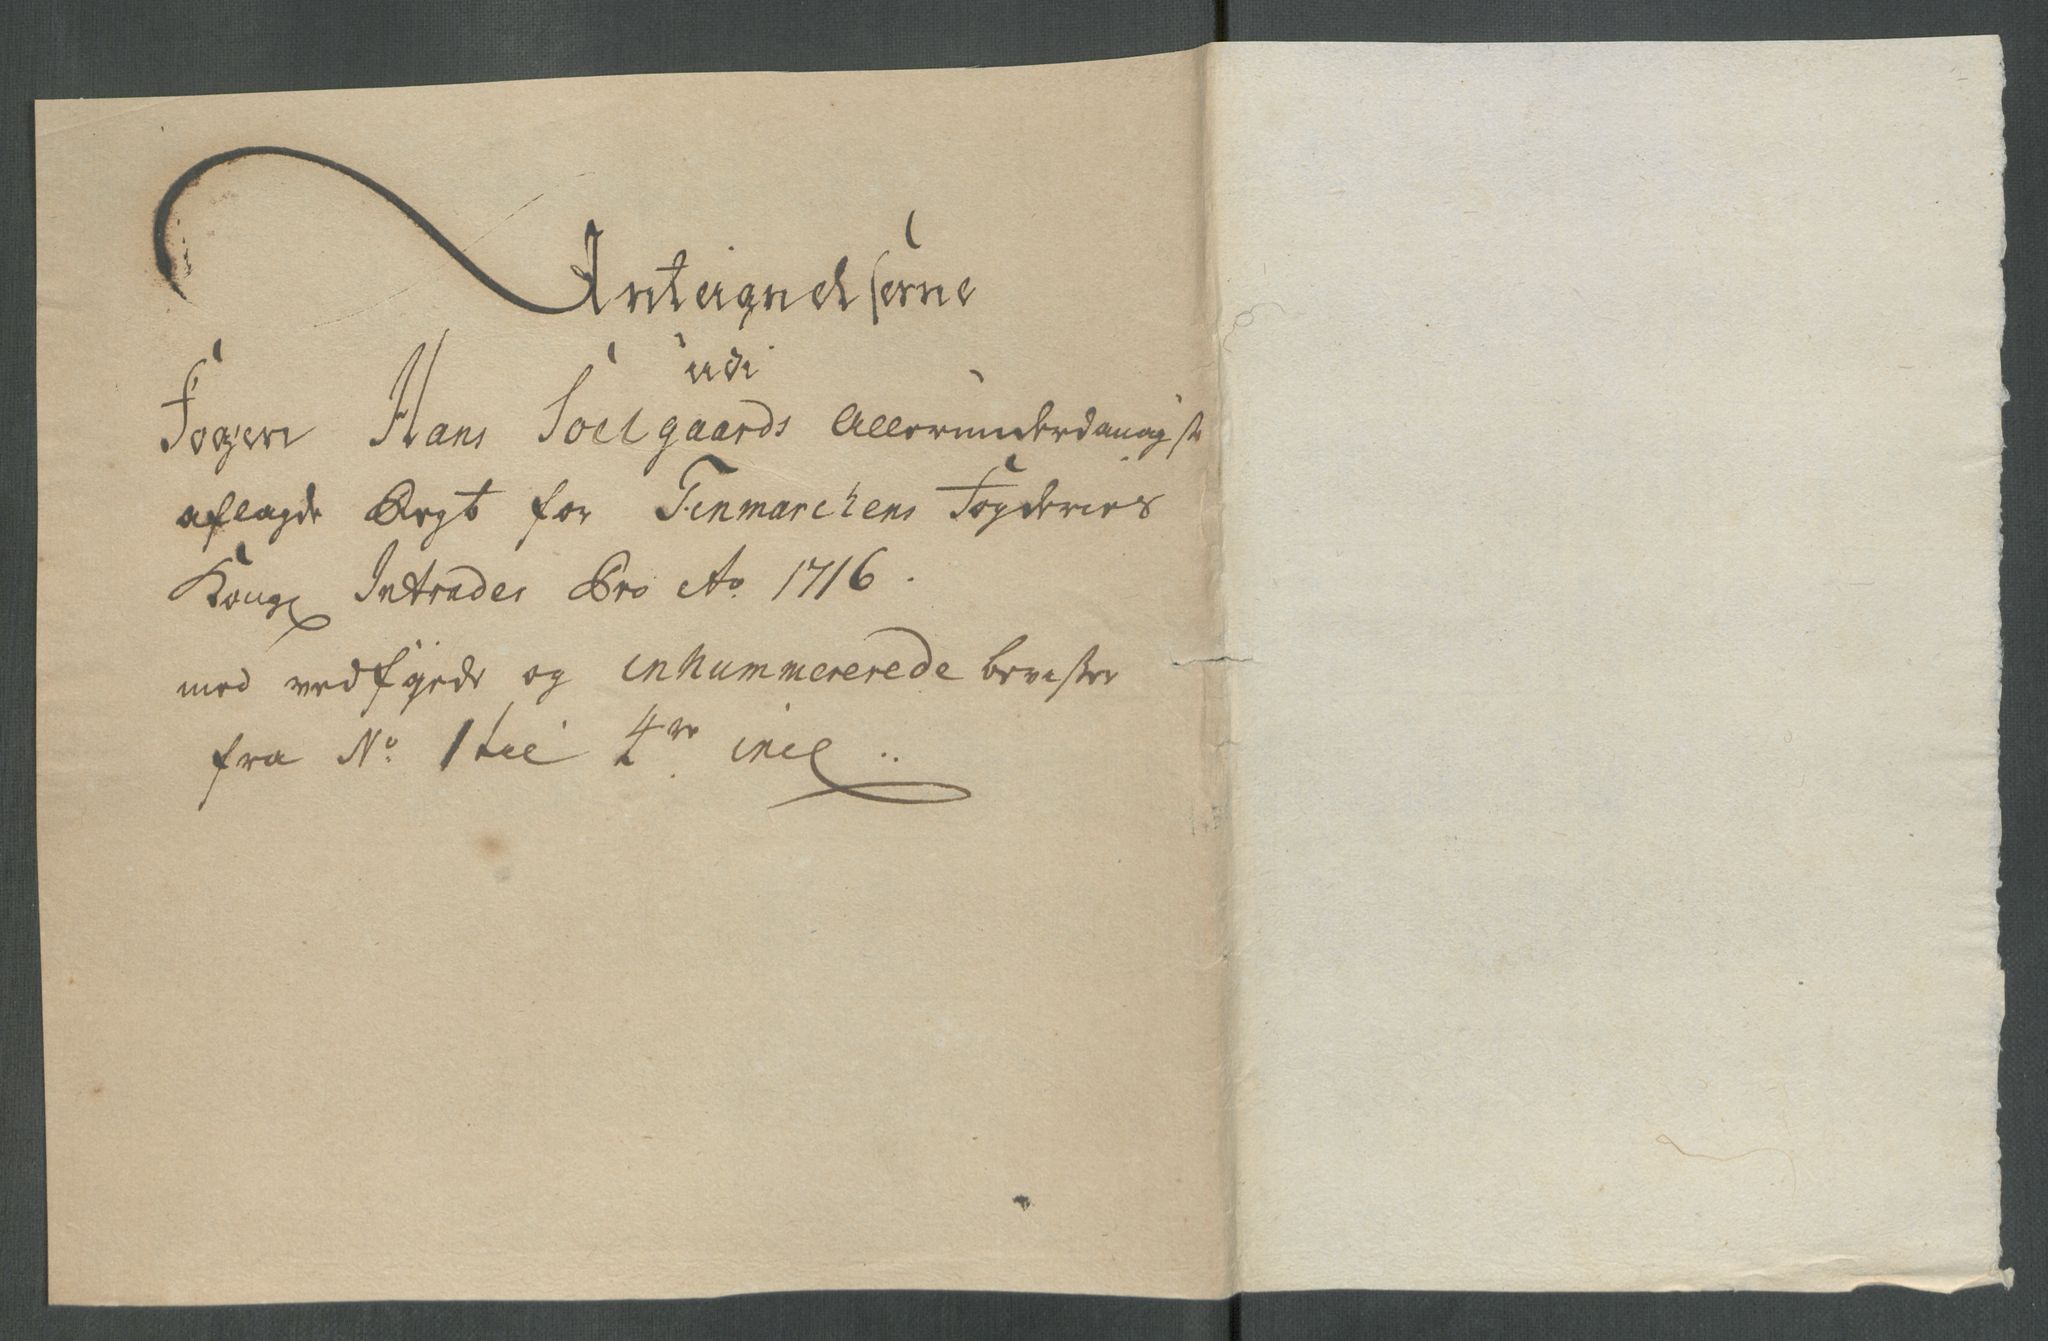 Anteignelserne
udi
Fogen Hans Soelgaards Allerunderdanigste
aflagde Regt for Finmarckens Fogderies
Kongl Intrader Pro Ao 1716.
med vedføyede og innummererede beviser
fra No. 1 till 4re incl..